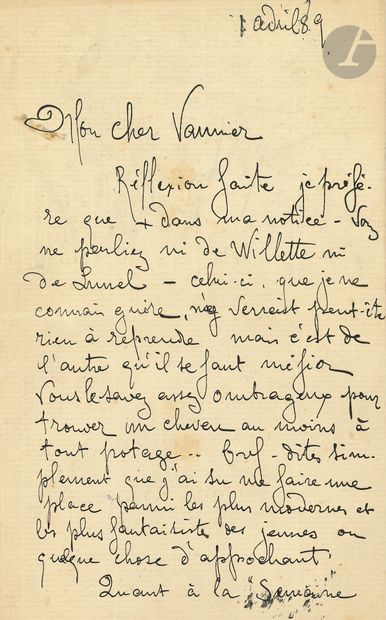 1 avril 89
Mon cher Vannier
Réflexion faite je préfé-
re que + dans ma notice - vous
ne parliez ni de Willette ni
de Lunel - celui-ci, que je ne
connais guère, n'y verrait peut-être
rien à reprendre mais c'est de
l'autre qu'il se faut méfier
Vous le savez assez ombrageux pour
trouver un cheveu au moins à
tout potage.. bref - dites sim-
plement que j'ai su me faire une
place parmi les plus modernes et
les plus fantaisiste des jeunes ou
quelque chose d'approchant
Quant à la Semaine